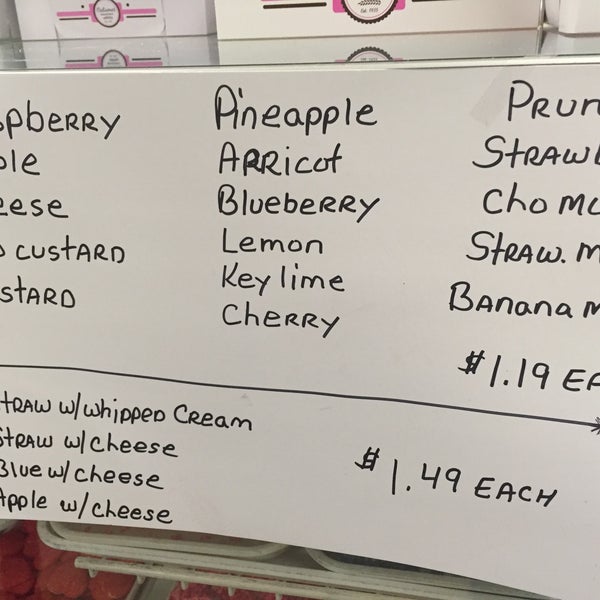 pberry
ple
eese
custard
stard
Pineapple
Apricot
Blueberry
Lemon
Key lime
Cherry
Prun
Straw
Cho
Straw. M
Banana M
$1.19 EA
Straw w/whipped Cream
Straw w/cheese
Blue w/cheese
Apple w/cheese
$1.49 EACH